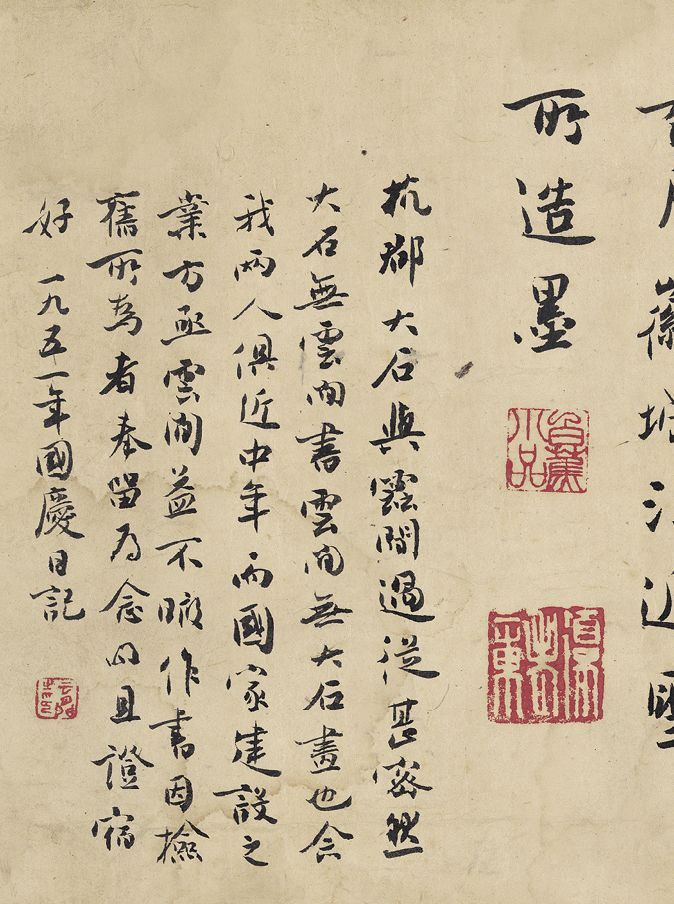 徽城汪近聖
所造墨
杭郡大石與雲間過從甚密然
大石無雲間書雲間無大石畫也念
我兩人俱近中年而國家建設之
業方亟雲間益不暇作書因撿
舊所為者奉留為念以且證宿
好 一九五一年國慶日記